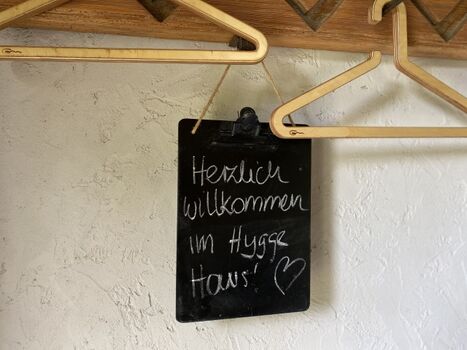 Herzlich
willkommen
im Hygge
Haus! ♡